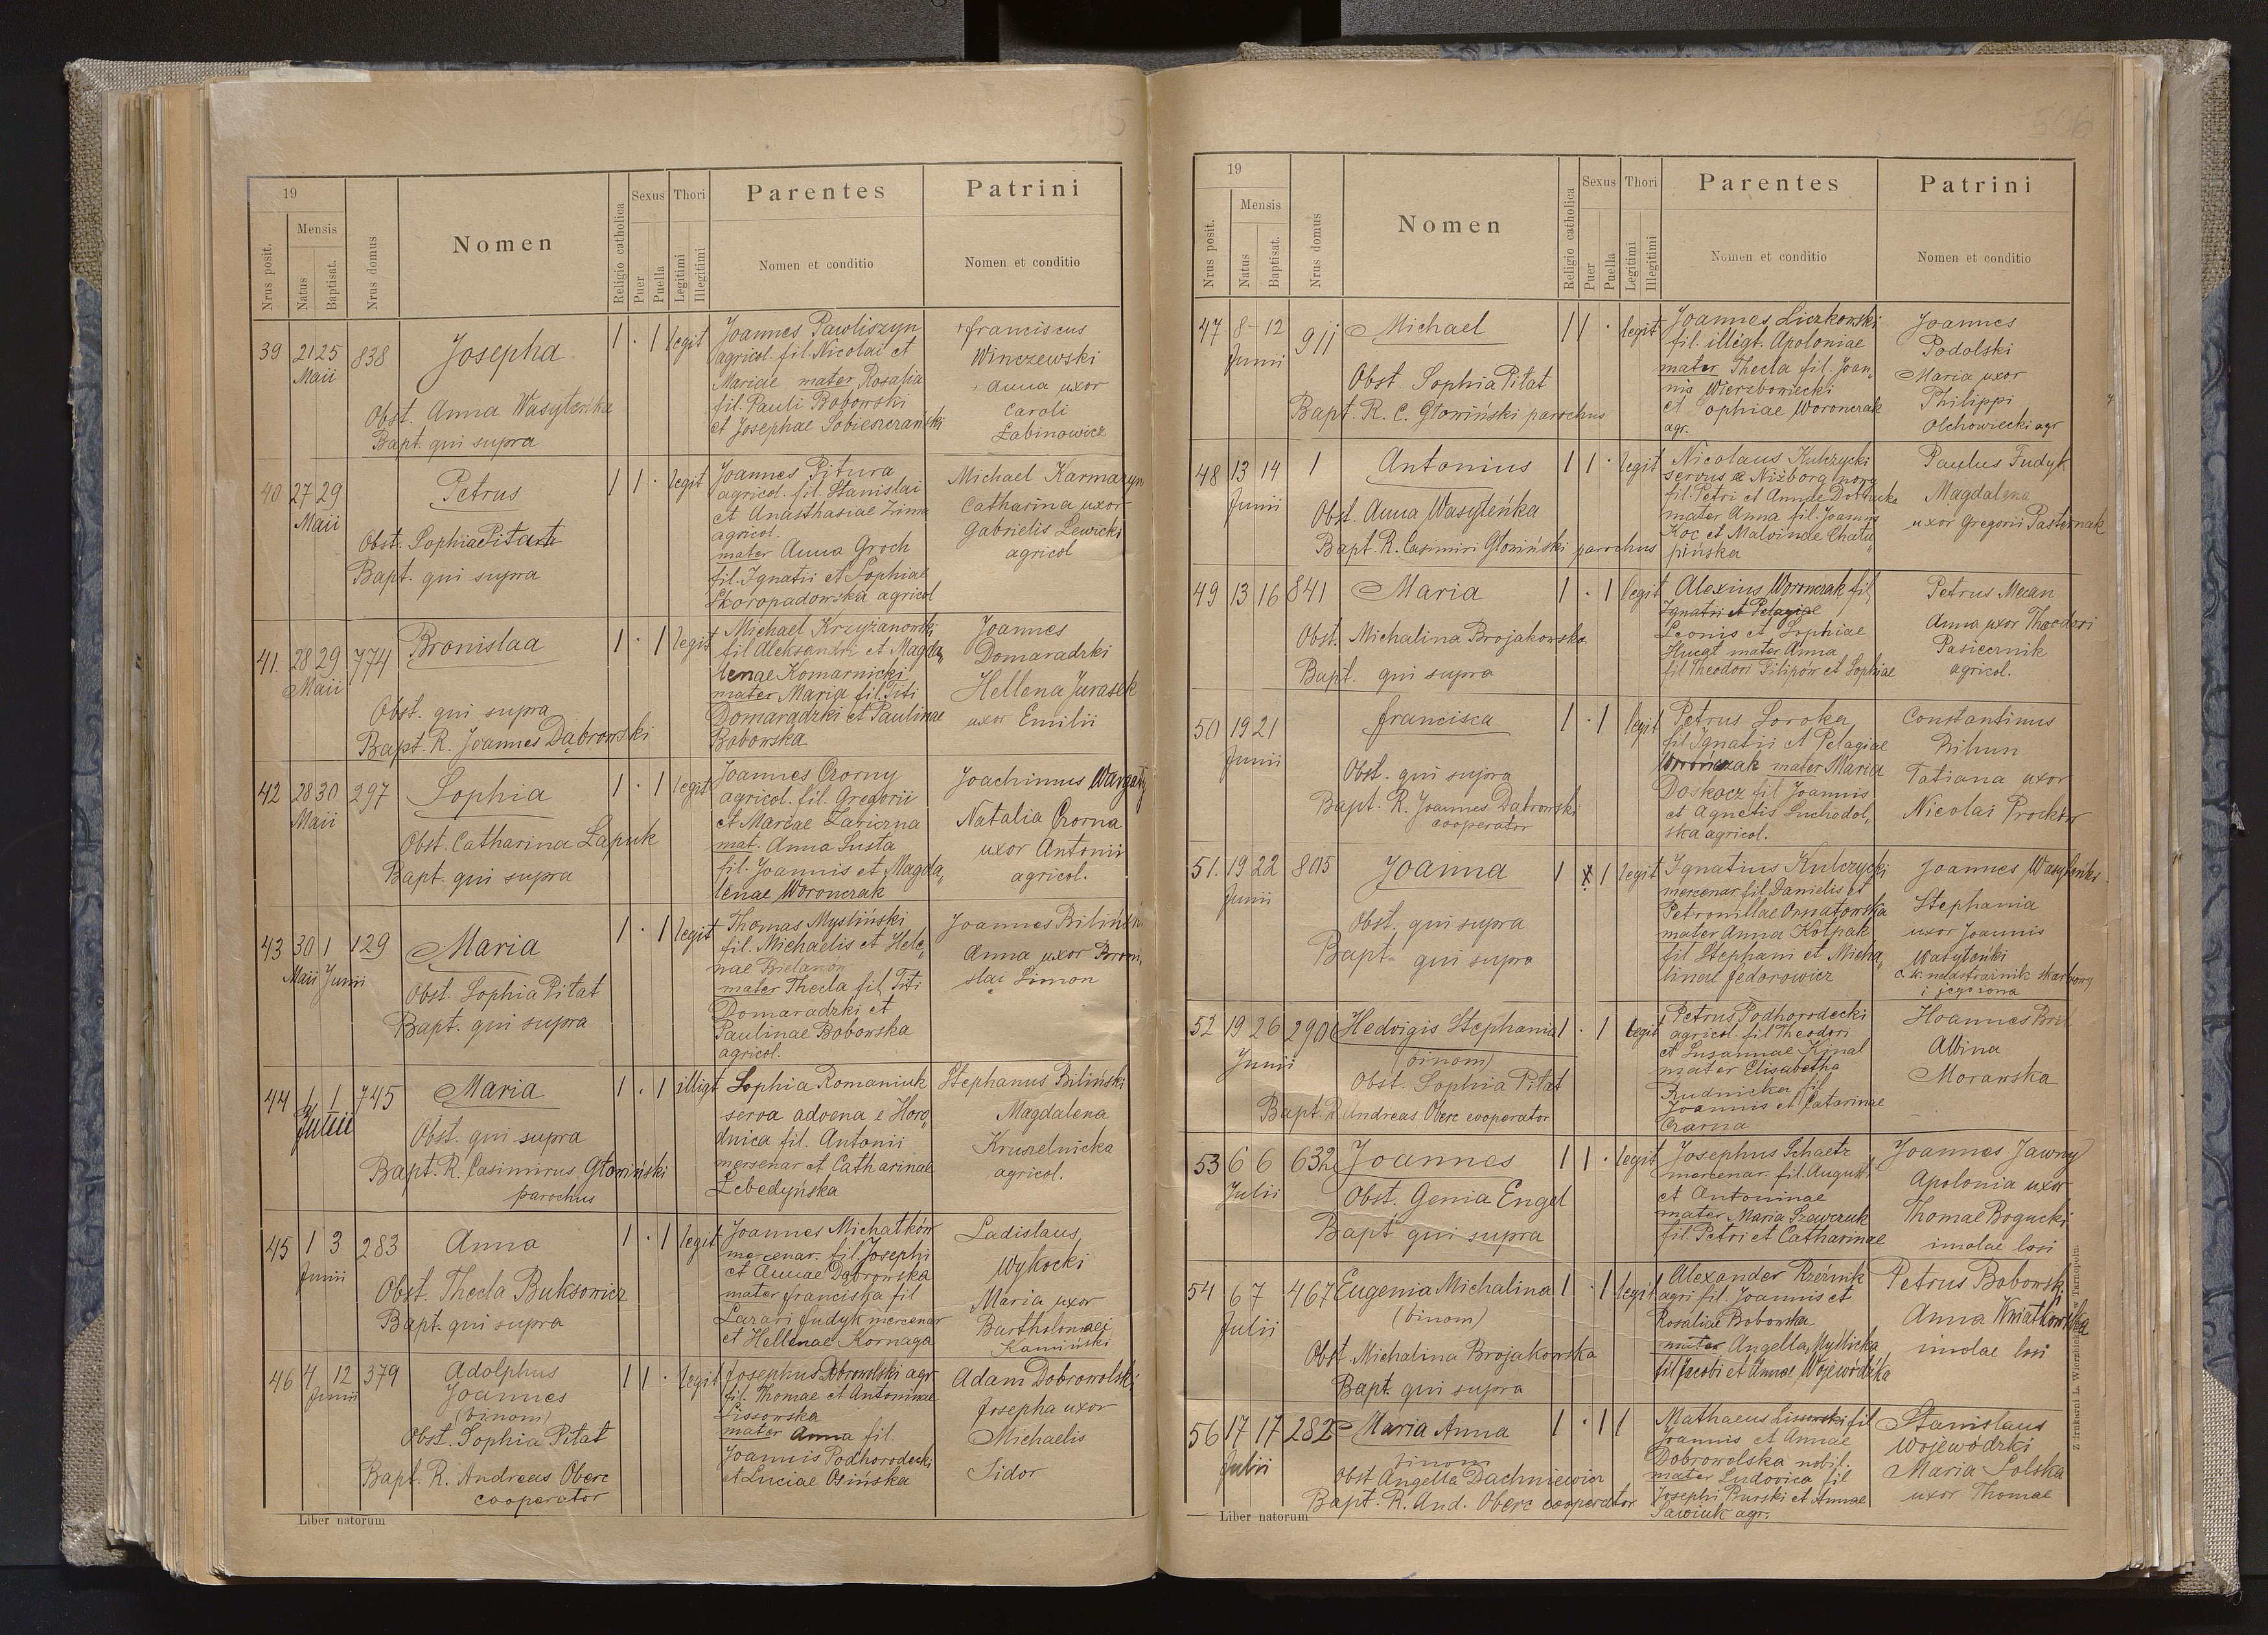 505
19
Nrus posit.
Mensis
Natus
Baptisat.
Nrus domus
Nomen
Religio catholica
Sexus
Puer
Puella
Thori
Legitimi
Illegitimi
Parentes
Nomen et conditio
Patrini
Nomen et conditio
39 21 25 838 Josepha 1 . 1 legit
Maii
Obst. Anna Wasyleńka
Bapt. qui supra
Joannes Pawliszyn
agricol. fil. Nicolai et
Mariae mater Rosalia
fil. Pauli Bobowski
et Josephae Sobieszczański
+ franciscus
Winczewski
Anna uxor
Caroli
Łabinowicz
40 27 29 Petrus 1 1 . legit
Maii
Obst. Sophia Pitat
Bapt. qui supra
Joannes Pitura
agricol. fil. Stanislai
et Anasthasiae Zima
agricol.
mater Anna Groch
fil. Ignatii et Sophiae
Skoropadowska agricol
Michael Karmazyn
Catharina uxor
Gabrielis Lewicki
agricol
41. 28 29 774 Bronislaa 1 . 1 legit
Maii
Obst. qui supra
Bapt. R. Joannes Dąbrowski
Michael Krzyżanowski
fil Aleksandri et Magda„
lenae Komarnicki
mater Maria fil. Titi
Domaradzki et Paulinae
Bobowska
Joannes
Domaradzki
Hellena Jurasek
uxor Emilii
42 28 30 297 Sophia 1 . 1 legit
Maii
Obst. Catharina Lapuk
Bapt. qui supra
Joannes Czorny
agricol. fil. Gregorii
et Mariae Zariczna
mat. Anna Susta
fil. Joannis et Magda„
lenae Woronczak
Joachimus
Natalia Czorna
uxor Antonii
agricol.
43 30 1 129 Maria 1 . 1 legit
Maii Junii
Obst. Sophia Pitat
Bapt. qui supra
Thomas Myśliński
fil. Michaelis et Hele„
nae Bielanow
mater Thecla fil. Titi
Domaradzki et
Paulinae Bobowska
agricol.
Joannes Biliński
Anna uxor Broni„
slai Simon
44 1 1 745 Maria 1 . 1 illigt
Obst. qui supra
Bapt. R. Casimirus Głowiński
parochus
Sophia Romaniuk
serva advena e Horo„
dnica fil. Antonii
mersenar et Catharinae
Łebedyńska
Stephanus Biliński
Magdalena
Kruszelnicka
agricol.
45 1 3 283 Anna 1 . 1 legit
Junii
Obst. Thecla Buksowicz
Bapt. qui supra
Joannes Michałków
mercenar. fil. Josephi
et Annae Dąbrowska
mater franciska fil
Lazari fudyk mercenar
et Hellenae Kornaga
Ladislaus
Wykocki
Maria uxor
Bartholomaei
Kamiński
46 4 12 379 Adolphus 1 1 . legit
Junii
Joannes
(binom)
Obst. Sophia Pitat
Bapt. R. Andreas Oberc
cooperator
Josephus Dobrowolski agr.
fil. Thomae et Antoninae
Lissowska
mater Anna fil.
Joannis Podhorodecki
et Luciae Osińska
Adam Dobrowolski
Josepha uxor
Michaelis
Sidor
Liber natorum
506
19
Nrus posit.
Mensis
Natus
Baptisat.
Nrus domus
Nomen
Religio catholica
Sexus
Puer
Puella
Thori
Legitimi
Illegitimi
Parentes
Nomen et conditio
Patrini
Nomen et conditio
47 8-12 911 Michael 1 1 . legit
Junii
Obst. Sophia Pitat
Bapt. R. C. Głowiński parochus
Joannes Liczkowski
fil. illegt. Apoloniae
mater Thecla fil. Joan„
nis Wierzbowiecki
et ophiae Woronczak
agr.
Joannes
Podolski
Maria uxor
Philippi
Olchowiecki agr
48 13 14 1 Antonius 1 1 . legit
Junii
Obst. Anna Wasyleńka
Bapt. R. Casimiri Głowiński parochus
Nicolaus Kulczycki
servus e Niżborg nowy
fil. Petri et Annae
mater Anna fil. Joannis
Koc et Malvinae Chału„
pińska
Paulus Fudyk
Magdalena
uxor Gregorii Pasternak
49 13 16 841 Maria 1 . 1 legit
Obst. Michalina Brojakowska
Bapt. qui supra
Alexius Woronczak fil
Ignatii et Pelagiae
Leonis et Sophiae
Hucał mater Anna
fil Theodori Filipów et Sophiae
Petrus Mecan
Anna uxor Theodori
Pasiecznik
agricol.
50 19 21 francisca 1 . 1 legit
Junii
Obst. qui supra
Bapt. R. Joannes Dabrowski
cooperator
Petrus Soroka
fil Ignatii et Pelagiae
Worończak mater Maria
Doskocz fil Joannis
et Agnetis Suchodol„
ska agricol.
Constantinus
Bihun
Tatiana uxor
Nicolai Procktor
51. 19 22 805 Joanna 1 1 legit
Junii
Obst. qui supra
Bapt- qui supra
Ignatius Kulczycki
mercenar fil Danielis et
Petronillae Ornatowska
mater Anna Kołpak
fil Stephani et Micha„
linae fedorowicz
Joannes Wasyleńki
Stephania
uxor Joannis
Wasyleńki
skarbowy
i jego żona
52 19 26 290 Hedvigis Stephania 1 . 1 legit
Junii
(binom)
Obst. Sophia Pitat
Bapt. R Andreas Oberc cooperator
Petrus Podhorodecki
agricol. fil Theodori
et Susannae Kinal
mater Elisabetha
Rudnicka fil
Joannis et Catarinae
Czarna
Hoannes Bril
Albina
Morawska
53 6 6 632 Joannes 1 1 . legit
Julii
Obst. Genia Engel
Bapt qui supra
Josephus Schaetz
mercenar. fil. Augusti
et Antoninae
mater Maria Szewczuk
fil. Petri et Catharinae
Joannes Jawny
Apolonia uxor
Thomae Bogucki
imolae loci
54 6 7 467 Eugenia Michalina 1 . 1 legit
Julii
(binom)
Obst. Michalina Brojakowska
Bapt. qui supra
Alexander Rzeźnik
agri fil. Joannis et
Rosaliae Bobowska
mater Angella Myślicka
fil Jacobi et Annae Wojewódzka
Petrus Bobowski
Anna Kwiatkowska
imolae loci
56 17 17 282 Maria Anna 1 . 1 1
Julii
binom
Obst Angella Dachniewicz
Bapt. R. And. Oberc cooperator
Mathaeus Lissowski fil
Joannis et Annae
Dobrowolska nobil.
mater Ludovica fil
Josephi Burski et Annae
Sawiuk agr.
Stanislaus
Wojewódzki
Maria Solska
uxor Thomae
Liber natorum
Z drukarni L. Wierzbickiego w Tarnopolu.